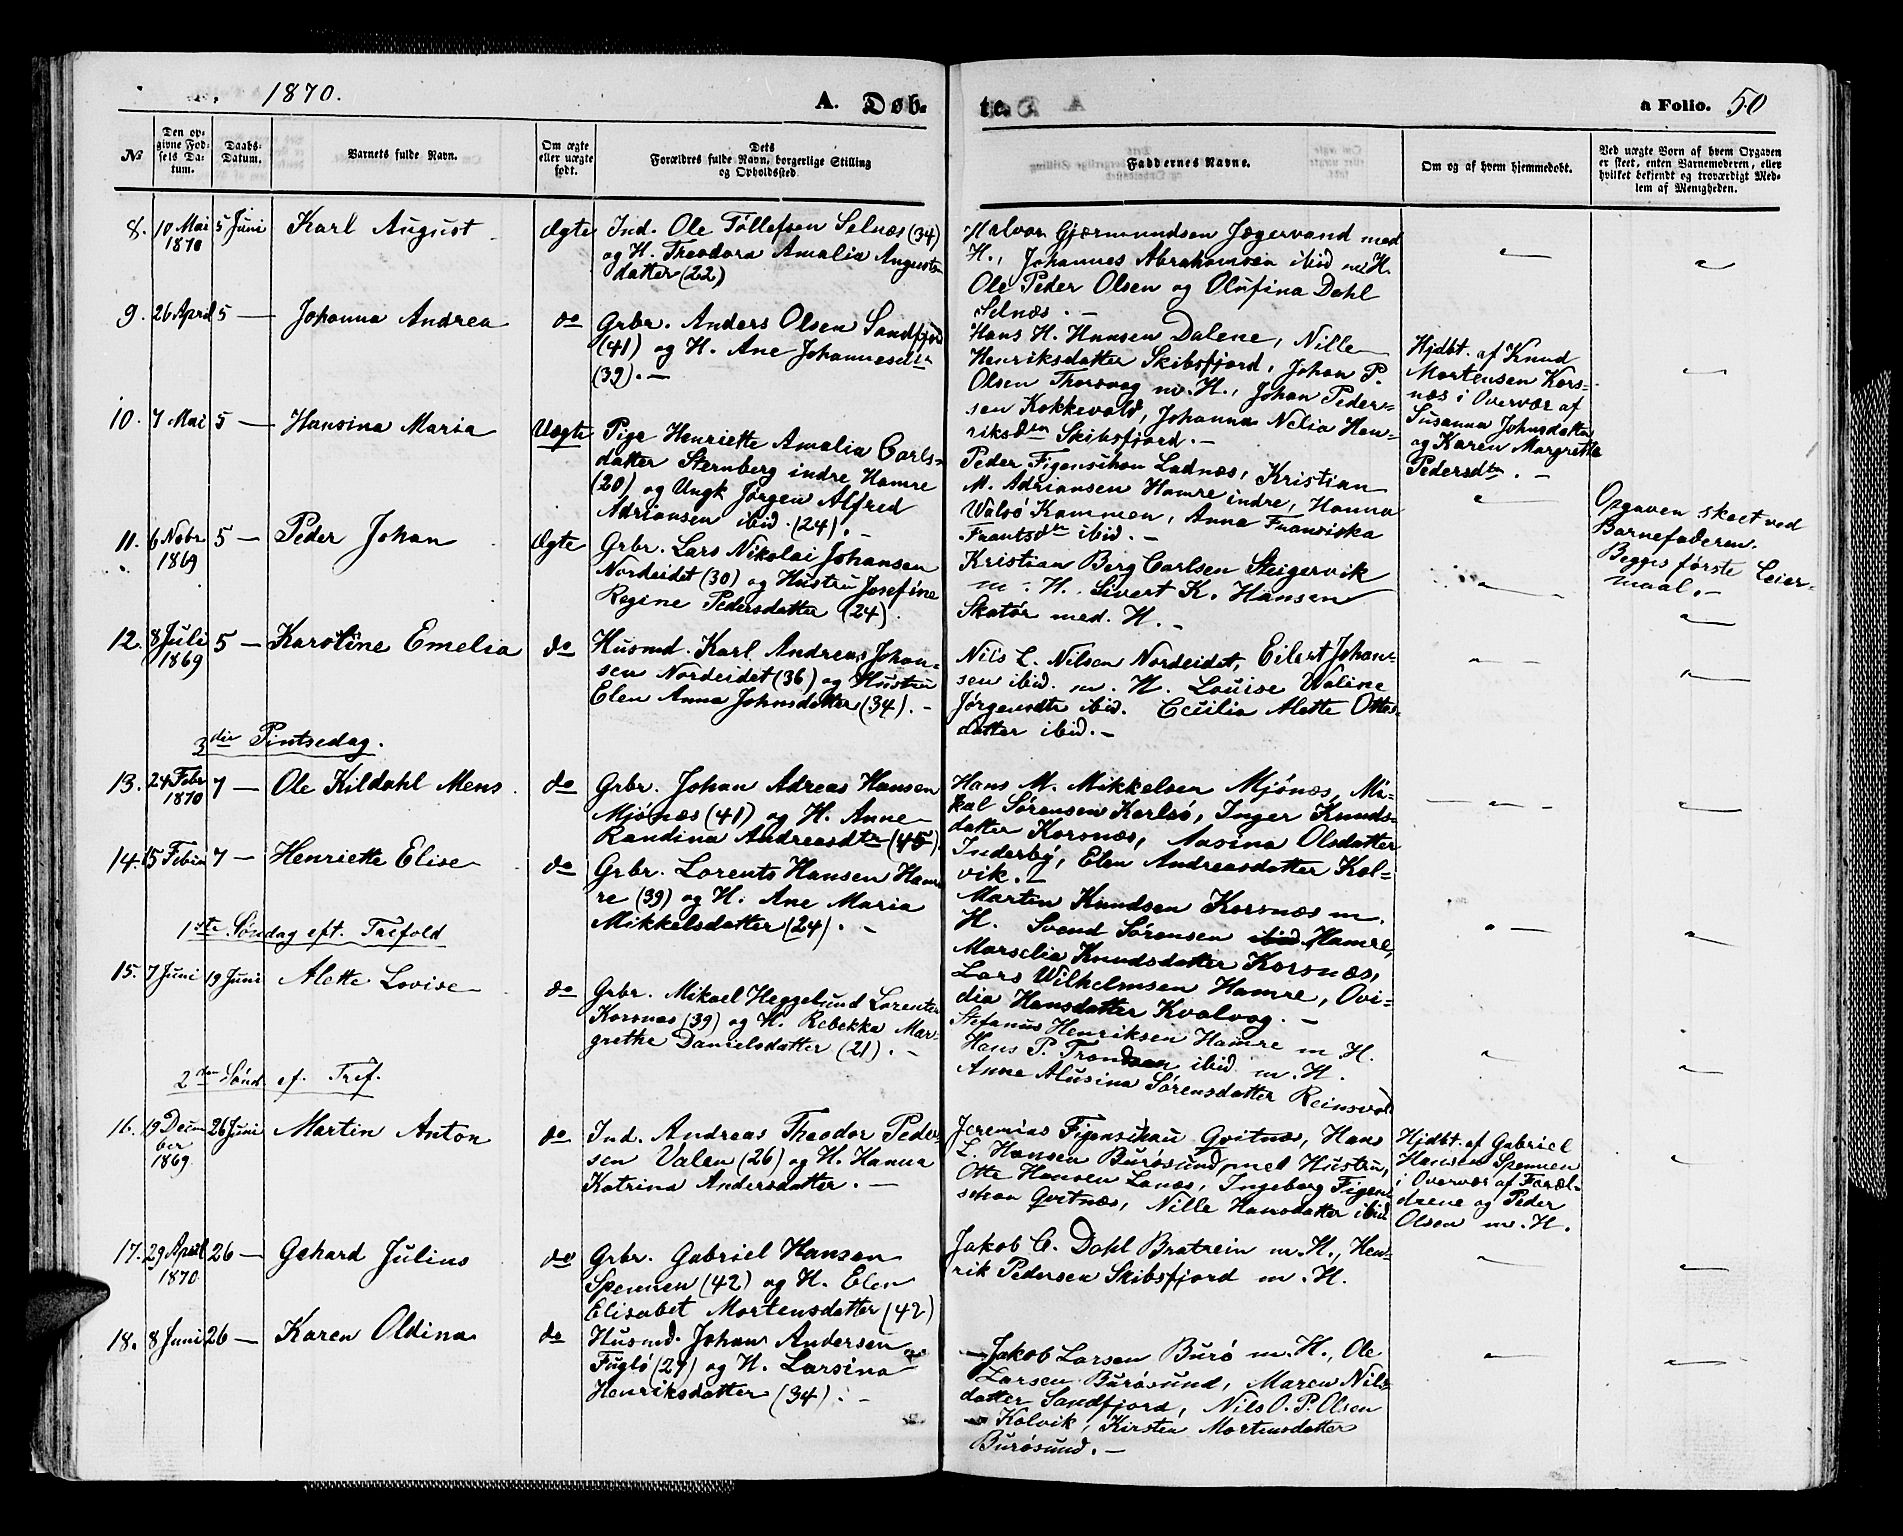 1870.
A. Døb-
te.
a Folio. 50
No
Den op-
givne Fød-
sels Da-
tum.
Daabs-
Datum.
Barnets fulde Navn.
Om ægte
eller uægte
født.
Dets
Forældres fulde Navn, borgerlige Stilling
og Opholdssted.
Faddernes Navne.
Om og af hvem hjemmedøbt.
Ved uægte Børn af hvem Opgaven
er skeet, enten Barnemoderen, eller
hvilket bekjendt og troværdigt Med-
lem af Menigheden.
8. 10 Mai 1870 5 Juni Karl August Ægte
Ind. Ole Tollefsen Selnæs (34)
og H. Theodora Amalia August
datter (22)
Halvor Gjermundsen Jægervand med
H., Johannes Abrahamsen ibid m. H.
Ole Peder Olsen og Olufina Dahl
Selnæs. -
9. 26 April 5 — Johanna Andrea do
Grbr. Anders Olsen Sandfjord
(41) og H. Ane Johannesdtr
(39). -
Hans H. Hansen Dalene, Nille
Henriksdatter Skibsfjord, Johan P.
Olsen Thorsvog m. H., Johan Peder-
sen Kokkevold, Johanna Nelia Hen-
riksdtr Skibsfjord. -
Hjdbt. af Knud
Mortensen Kors-
næs i Overvær af
Susanna Johnsdatter
og Karen Margrethe
Pedersdtr. -
10. 7 Mai 5 — Hansina Maria Uægte
Pige Henriette Amalia Carls-
datter Sternberg indre Hamre
(20) og Ungk Jørgen Alfred
Adriansen ibid. (24). -
Peder Figenschou Ladnæs, Kristian
M. Adriansen Hamre indre, Hanna
Valsø Kammen, Anna Fransiska
Frantsdtr ibid. -
Opgaven skeet ved
Barnefaderen.
Begges første Leier-
maal. -
11. 6 Nobr 1869 5 — Peder Johan Ægte
Grbr. Lars Nikolai Johansen
Nordeidet (30) og Hustru Josefine
Regine Pedersdatter (24).
Kristian Berg Carlsen Steigervik
m. H. Sivert K. Hansen
Skatør med H. -
12. 8 Juli 1869 5 — Karoline Emelia do
Husmd. Karl Andreas Johan-
sen Nordeidet (36) og Hustru
Elen Anna Johnsdatter (34). -
Nils L. Nilsen Nordeidet, Eilert Johan-
sen ibid. m. H. Louise Valine
Jørgensdtr ibid. Cecilia Alette Otto-
datter ibid. -
3die Pintsedag.
13. 24 Febr 1870 7 — Ole Kildahl Mens do
Grbr. Johan Adreas Hansen
Mjønæs (41) og H. Anne
Randina Andreasdtr (45).
Hans M. Mikkelsen Mjønæs, Mi-
kal Sørensen Karlsø, Inger Knuds-
datter Korsnæs, Aasina Olsdatter
Inderby, Elen Andreasdatter Kol-
vik. -
14. 15 Febr 7 — Henriette Elise do
Grbr. Lorents Hansen Ham-
re (39) og H. Ane Maria
Mikkelsdatter (24). -
Martin Knudsen Korsnæs m.
H. Svend Sørensen ibid Hamre,
Marselia Knudsdatter Korsnæs,
Lars Wilhelmsen Hamre, Ovi-
dia Hansdatter Kvalvog. -
1ste Søndag eft. Trefold
15. 7 Juni 19 Juni Alette Lovise do
Grbr. Mikael Heggelund Lorentsen
Korsnæs (39) og H. Rebekka Mar-
grethe Danielsdatter (21). -
Stefanus Henriksen Hamre m H.
Hans P. Trondsen ibid m. H.
Anne Alusina Sørensdatter Reinsvold
2den Sønd. ef. Tref.
16. 19 Decm ber 1869. 26 Juni Martin Anton do
Ind. Andreas Theodor Peder-
sen Valen (26) og H. Hanna
Katrina Andersdatter. -
Jeremias Figenschau Gvitnæs, Hans
L. Hansen Burøsund med Hustru,
Otte Hansen Lanæs, Ingeborg Figen-
schou Gvitnæs, Nille Hansdatter ibid
Hjdbt. af Gabriel
Hansen Spennen
i Overvær af Foræl-
drene og Peder
Olsen m. H.
17. 29 April 1870 26 — Gehard Julius do
Grbr. Gabriel Hansen
Spennen (42) og H. Elen
Elisabet Mortensdatter (42)
Jakob C. Dahl Bratrein m. H., Hen-
rik Pedersen Skibsfjord m. H.
18. 8 Juni 26 — Karen Oldina do
Husmd. Johan Andersen
Fuglø (27) og H. Larsina
Henriksdatter (34). -
Jakob Larsen Burø m. H., Ole
Larsen Burøsund, Maren Nils-
datter Sandfjord, Nils O. P. Olsen
Kolvik, Kirsten Mortensdatter
Burøsund. -